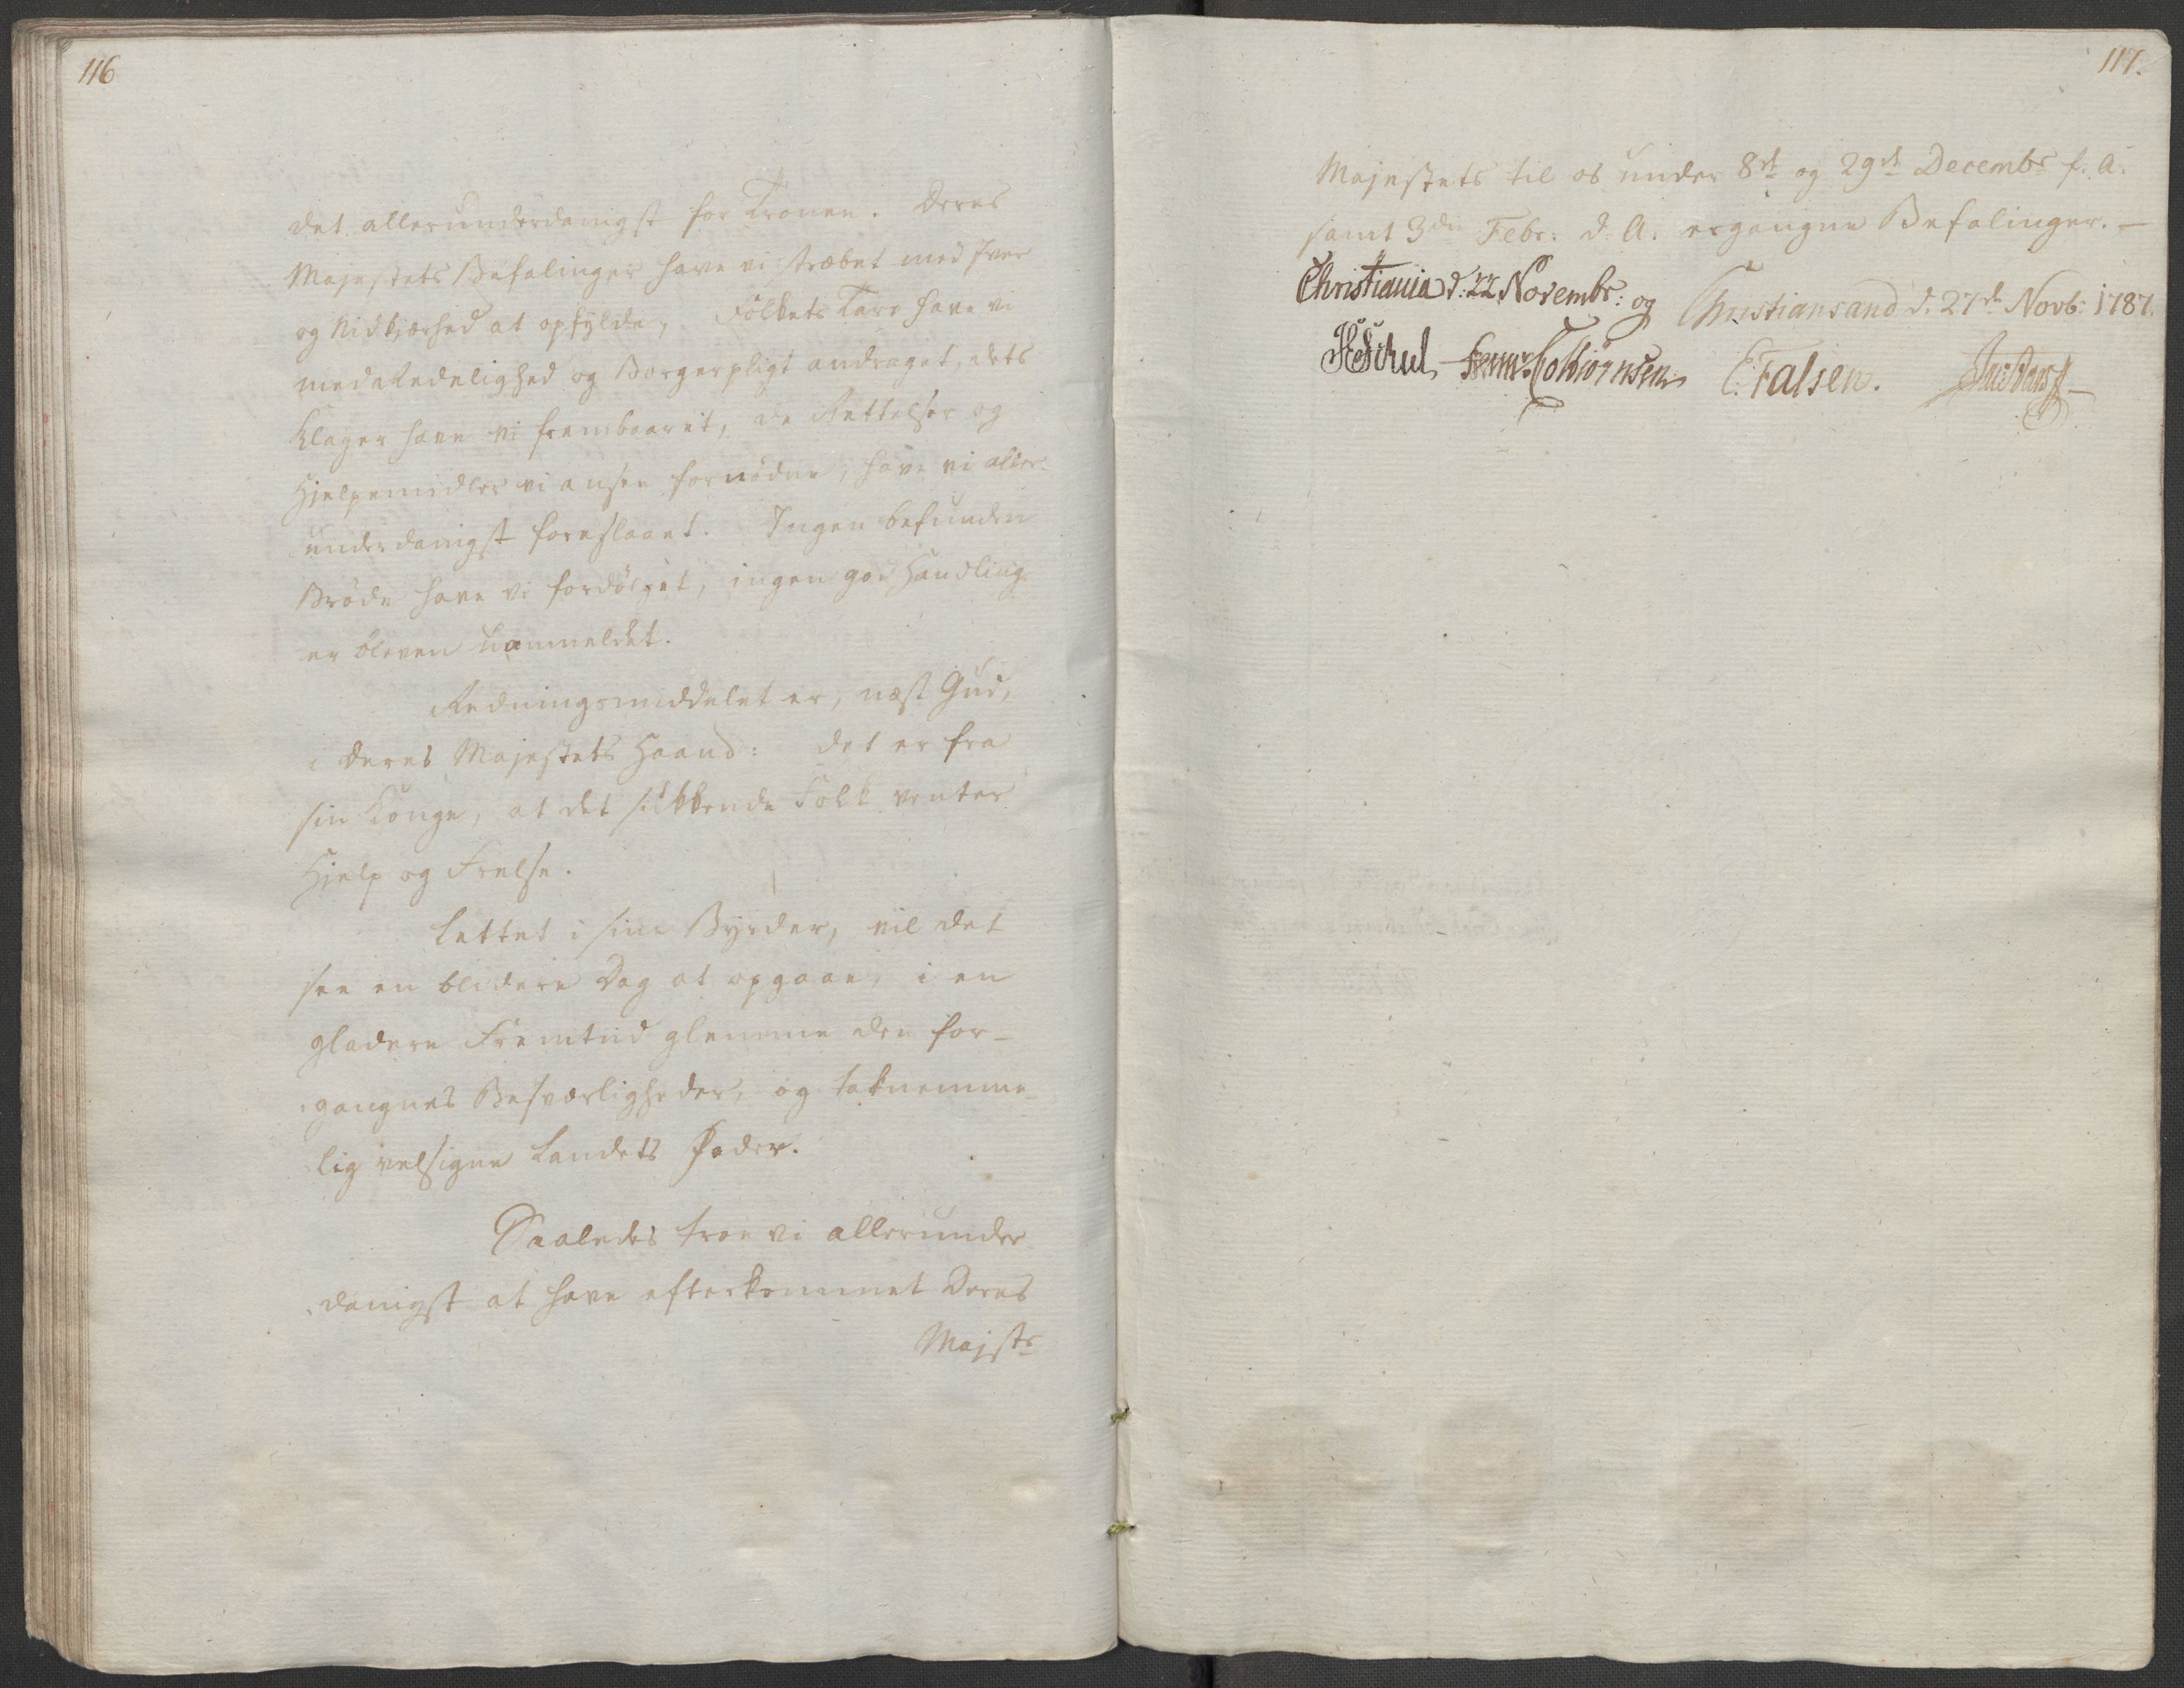 116
det allerunderdanigst for Tronen. Deres
Majestets Befalinger have vi stræbet med Iver
og Nidkjærhed at opfylde, Folkets Tarv have vi
med Redelighed og Borgerpligt andraget, dets
Klager have vi frembaaret, de Rettelser og
Hjelpemidler vi ansee fornødne, have vi aller-
underdanigst foreslaaet. Ingen befunden
Brøde have vi fordølget, ingen god Handling
er bleven uanmeldet.
Redningsmiddelet er, næst Gud,
i Deres Majestets Haand: det er fra
sin Konge, at det sukkende Folk venter
Hjelp og Frelse.
Lettet i sine Byrder, vil det
see en blidere Dag at opgaae, i en
gladere Fremtiid glemme den for-
gangnes Besværligheder, og taknemme-
lig velsigne Landets Fader.
Saaledes troe vi allerunder
danigst at have efterkommet Deres
Majsts
117.
Majestets til os under 8de og 29de Decembr f. A.
samt 3die Febr: d. A. ergangne Befalinger. —
Christiania d: 22 Novembr: og Christiansand d. 27de Novb: 1787.
Colbiørnsen E. Falsen.